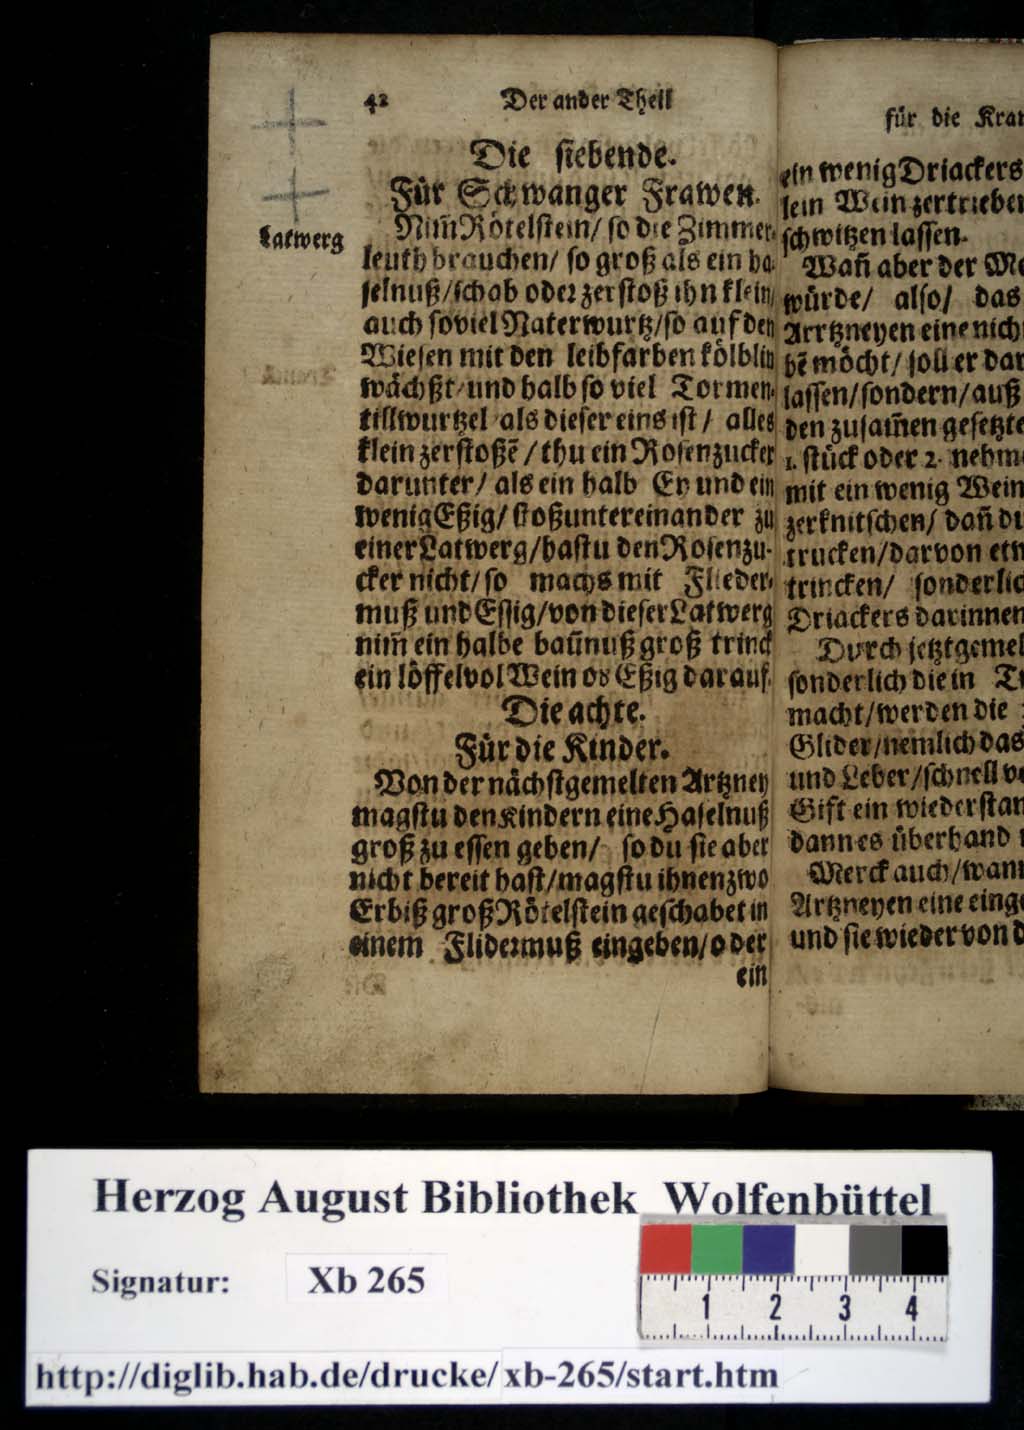 42 Der ander Theil
Die siebende.
Für Schwanger Frawen.
Latwerg
Nim̃ Rötelstein/ so die Zimmer-
leuth brauchen/ so groß als ein ha-
selnuß/schab oder zerstoß ihn klein/
auch soviel Naterwurtz/so auf den
Wiesen mit den leibfarben kölblin
wächßt/und halb so viel Tormen-
tillwurtzel als dieser eins ist/ alles
klein zerstoßẽ/ thu ein Rosenzucker
darunter/ als ein halb Ey und ein
wenig Eßig/ stoß untereinander zu
einer Latwerg/hastu den Rosenzu-
cker nicht/so machs mit Flieder-
muß und Essig/von dieser Latwerg
nim̃ ein halbe baũnuß groß trinck
ein löffelvol Wein oδ Eßig darauf.
Die achte.
Für die Kinder.
Von der nächstgemelten Artzney
magstu den Kindern eine Haselnuß
groß zu essen geben/ so du sie aber
nicht bereit hast/magstu ihnen zwo
Erbiß groß Rötelstein geschabet in
einem Flidermuß eingeben/oder
ein
für die
ein wenig Driackers
lein Wein zertrieben
schwitzen lassen.
Wañ aber der
würde/ also/ das
Arrtzneyen eine nich
bẽ möcht/ soll er dar
lassen/sondern/auß
den zusam̃en gesetzte
1. stück oder 2. nehm
mit ein wenig Wein
zerknitschen/ dañ du
trucken/darvon etw
trincken/ sonderlic
Driackers darinnen
Durch jetztgemel
sonderlich die in
macht/werden die
Glider/nemlich das
und Leber/schnell
Gift ein wiederstan
dann es überhand
Merck auch/wann
Artzneyen eine einge
und sie wieder von d
Herzog August Bibliothek Wolfenbüttel
Signatur: Xb 265
1 2 3 4
http://diglib.hab.de/drucke/xb-265/start.htm